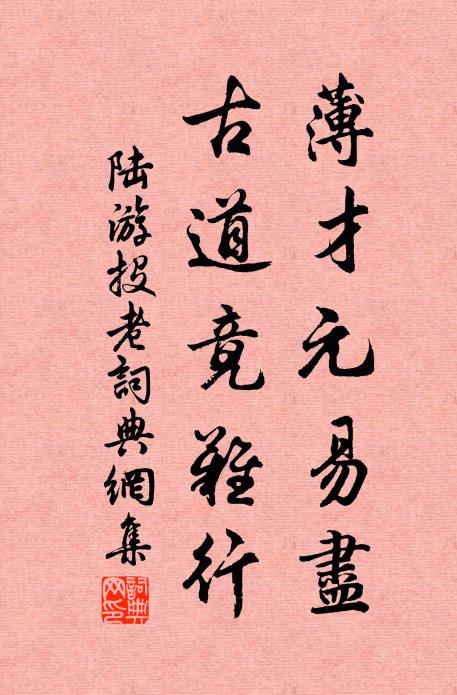 薄才元易盡
古道竟難行
陆游投老詞典網集
詞典網印